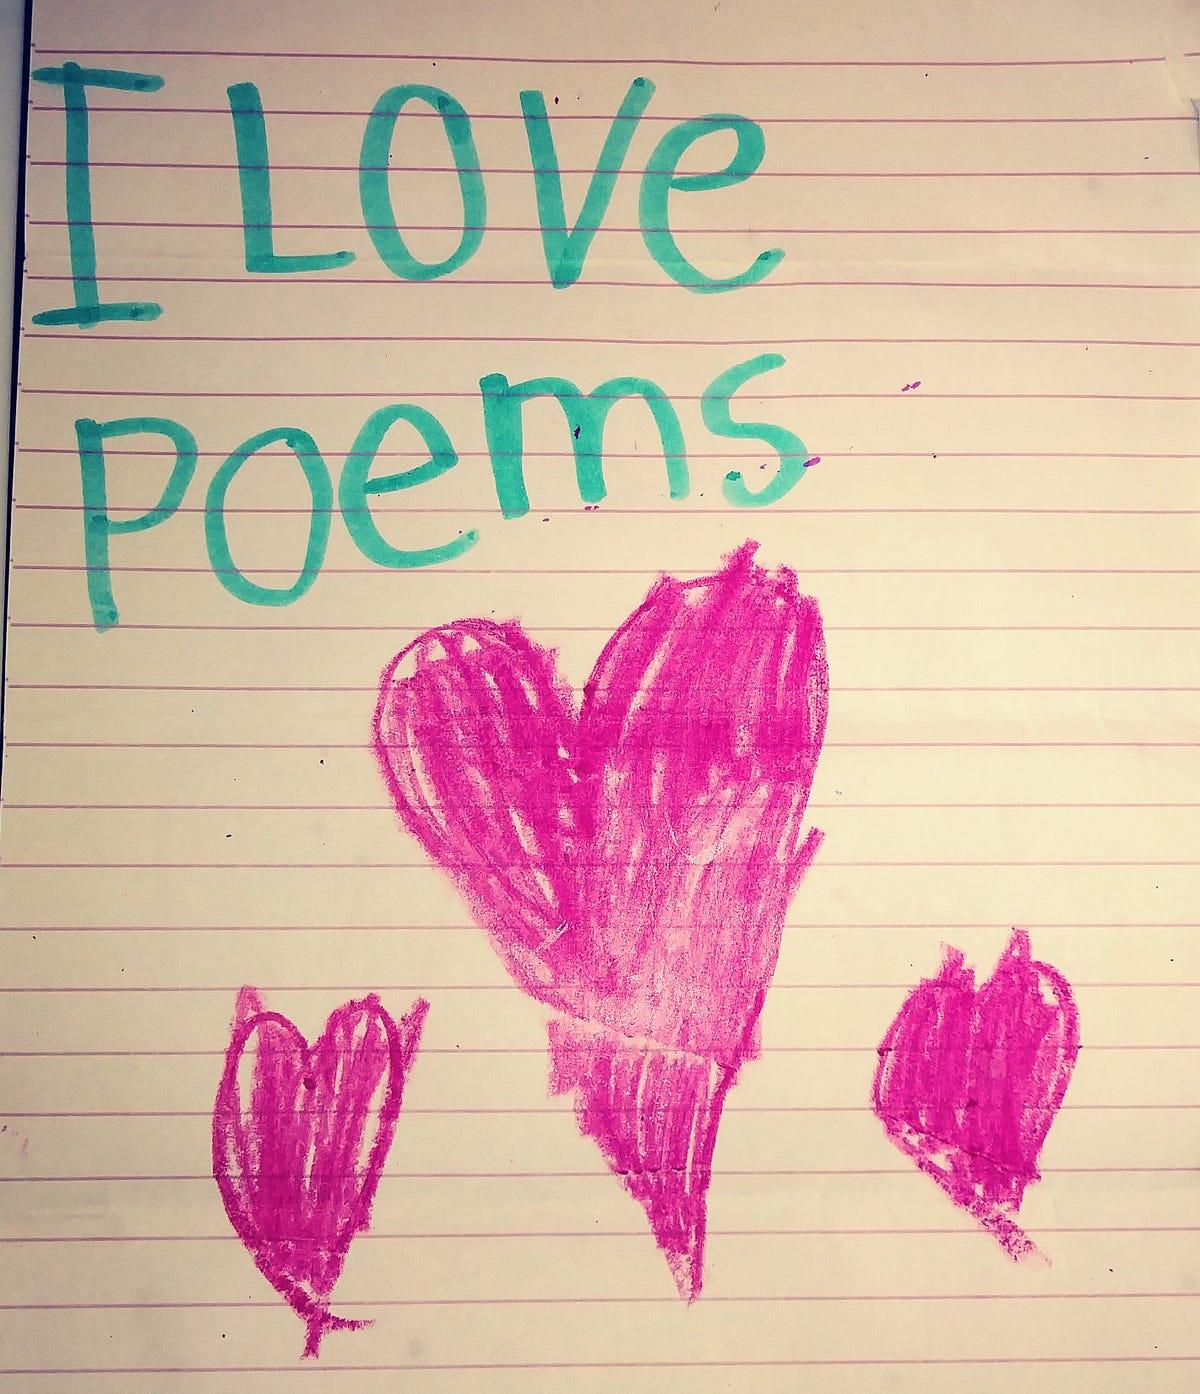 I LOVe
Poems